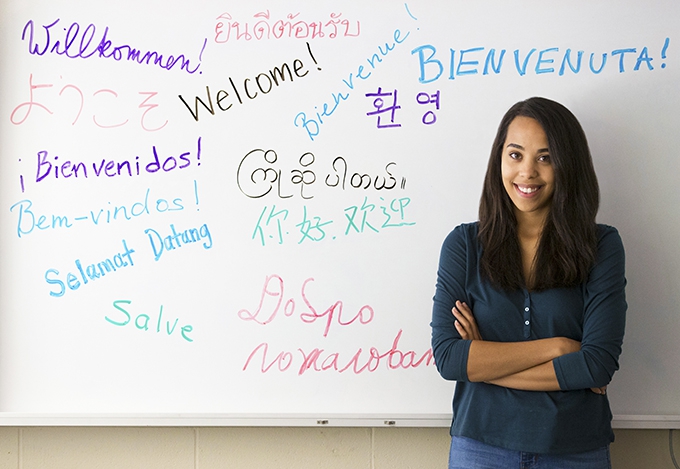 Willkommen!
ยินดีต้อนรับ
Bienvenue!
BIENVENUTA!
ようこそ
Welcome!
환 영
¡Bienvenidos!
ကြိုဆိုပါတယ်။
Bem-vindos!
你好.欢迎
Selamat Datang
Salve
Добро